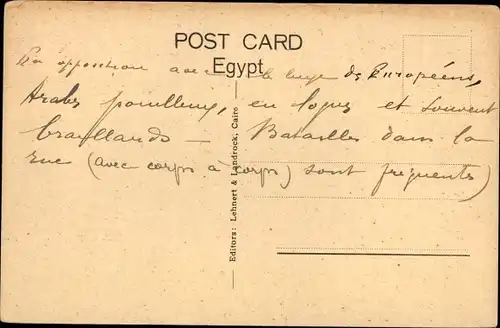 POST CARD
Egypt
En opposition avec le luxe des Européens,
Arabes pouilleux, en loques et souvent
braillards — Batailles dans la
rue (avec corps à corps) sont fréquents)
Editors: Lehnert & Landrock, Cairo